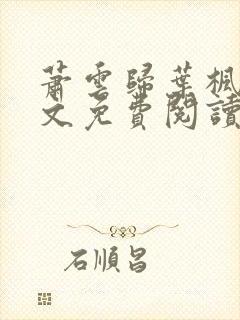 蕭雲歸葉楓
文免費閱讀
石順昌